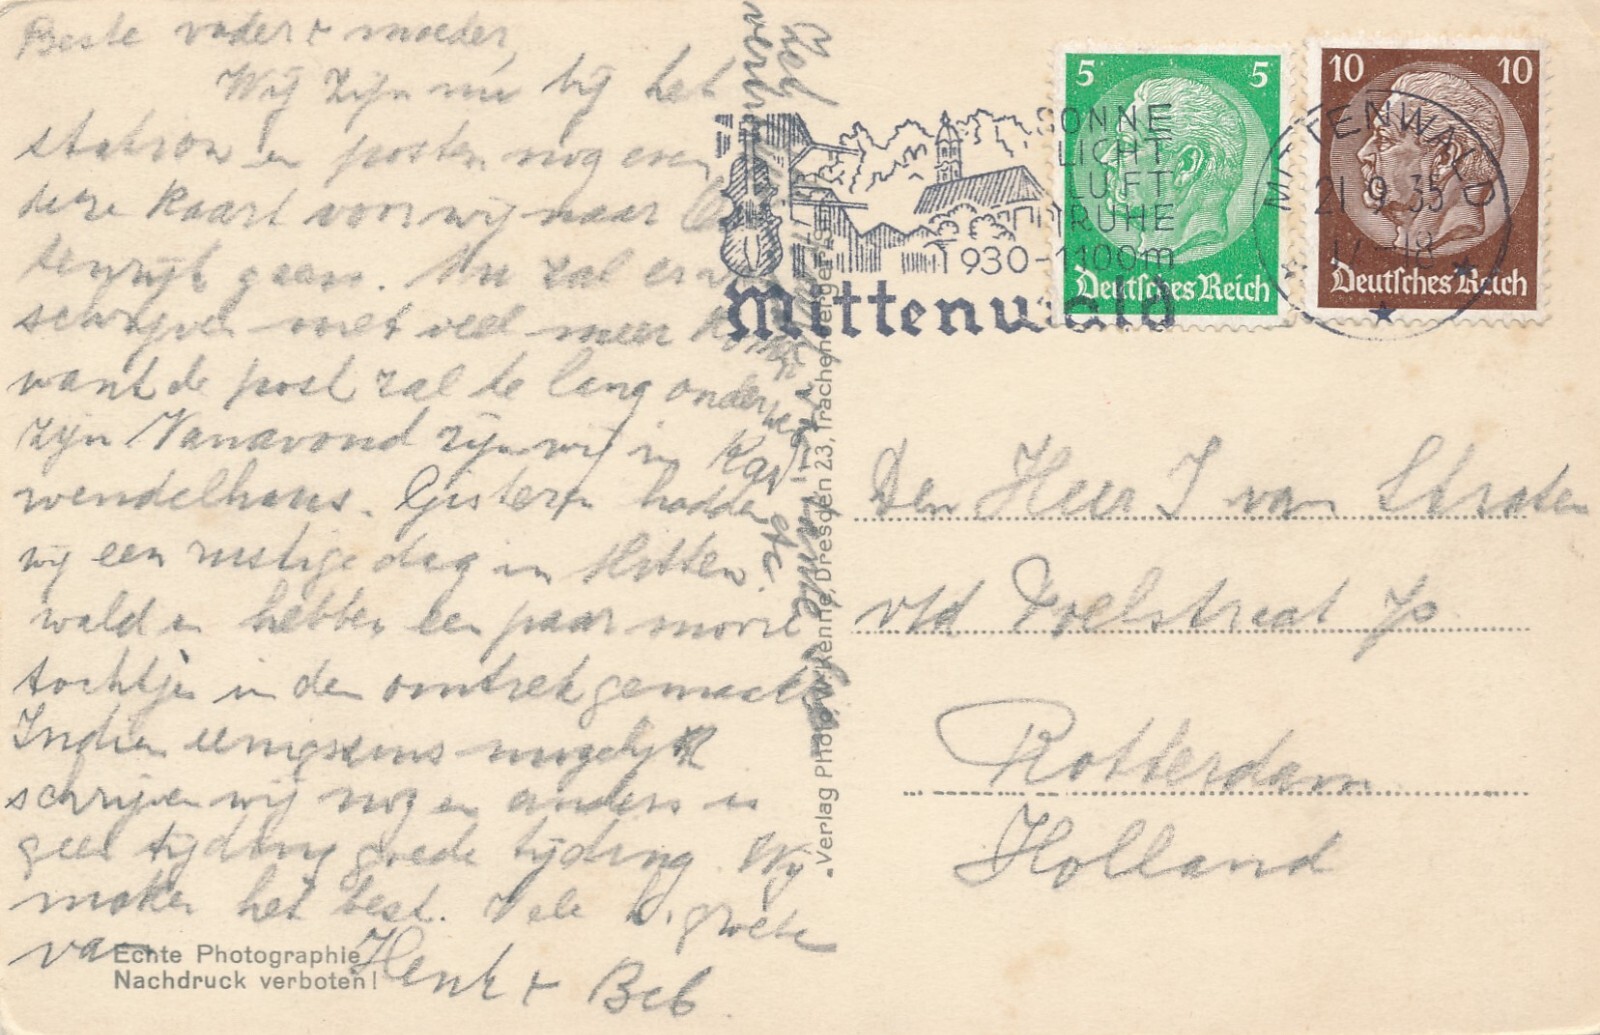 Beste vader + moeder,
Wij zijn nu bij het
station en posten nog even
deze kaart voor wij naar
gaan. Nu zal er van
schrijven niet veel meer
want de post zal te lang onderweg
zijn Vanavond zijn wij in Kar-
wendelhaus. Gisteren hadden
wij een rustige dag in Mitten
wald en hebben een paar mooie
tochtjes in den omtrek gemaakt
Indien eenigszins mogelijk
schrijven wij nog en anders is
geen tijding goede tijding. Wij
maken het best. Vele h. groete
van Henk + Beb
Echte Photographie
Nachdruck verboten!
Verlag Photo Dresden 23, Trachenbergerstr.
SONNE
LICHT
LUFT
RUHE
930-1100m
Mittenwald
5 5
Deutsches Reich
10 10
Deutsches Reich
MITTENWALD
21.9.35
17-18
Den Heer J van Straten
v/d Doelstraat
Rotterdam
Holland